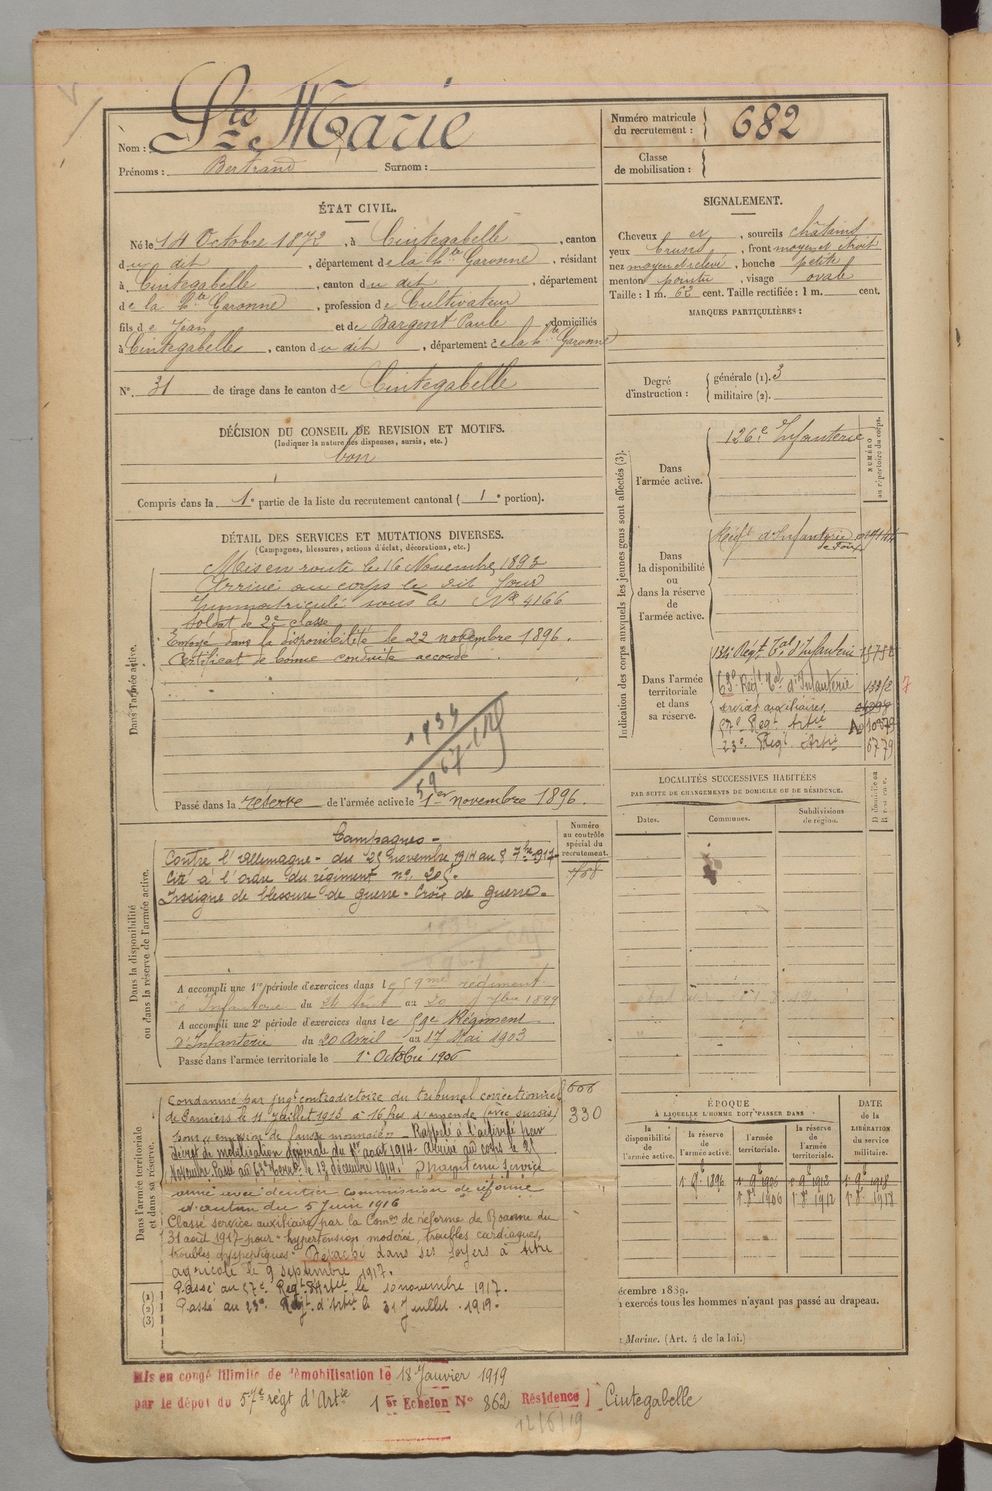 Nom : Ste Marie
Prénoms : Bertrand Surnom :
Numéro matricule
du recrutement : 682
Classe
de mobilisation :
ÉTAT CIVIL.
Né le 14 Octobre 1872, à Cintegabelle, canton
du dit, département de la Hte Garonne, résidant
à Cintegabelle, canton du dit, département
de la Hte Garonne, profession de Cultivateur
fils de Jean et de Bargeret Paule, domiciliés
à Cintegabelle, canton du dit, département de la Hte Garonne
N°. 31 de tirage dans le canton de Cintegabelle
SIGNALEMENT.
Cheveux et, sourcils châtains
yeux bruns, front moyen et étroit
nez moyen et relevé, bouche petite
menton pointu, visage ovale
Taille : 1 m. 62 cent. Taille rectifiée : 1 m. cent.
MARQUES PARTICULIÈRES :
Degré
d'instruction :
générale (1). 3
militaire (2).
DÉCISION DU CONSEIL DE REVISION ET MOTIFS.
(Indiquer la nature des dispenses, sursis, etc.)
bon
Compris dans la 1e partie de la liste du recrutement cantonal ( 1e portion).
DÉTAIL DES SERVICES ET MUTATIONS DIVERSES.
(Campagnes, blessures, actions d'éclat, décorations, etc.)
Dans l'armée active.
Mis en route le 16 Novembre 1893
Arrivé au corps le dit jour
Immatriculé sous le No 4166
Soldat de 2e classe
Envoyé dans la disponibilité le 22 novembre 1896.
Certificat de bonne conduite accordé.
Passé dans la réserve de l'armée active le 1er novembre 1896.
Indication des corps auxquels les jeunes gens sont affectés (3).
NUMÉRO
au répertoire du corps.
Dans
l'armée active.
126e Infanterie
Dans
la disponibilité
ou
dans la réserve
de
l'armée active.
Régt d'Infanterie
de Foix
Dans l'armée
territoriale
et dans
sa réserve.
134e Régt Tal d'Infanterie
63e Régt Tal d'Infanterie
services auxiliaires
57e Régt Artie
23e Régt Artie 6779
LOCALITÉS SUCCESSIVES HABITÉES
PAR SUITE DE CHANGEMENTS DE DOMICILE OU DE RÉSIDENCE.
Dates. Communes. Subdivisions
de région.
D domicile ou
R résidence.
Dans la disponibilité
ou dans la réserve de l'armée active.
Numéro
au contrôle
spécial du
recrutement.
Campagnes -
Contre l'Allemagne - du 25 novembre 1914 au 8 7bre 1917
Cité à l'ordre du régiment no 205.
Insigne de blessure de guerre. Croix de guerre.
A accompli une 1re période d'exercices dans le 59me régiment
d'Infanterie du 24 Août au 20 7bre 1899
A accompli une 2e période d'exercices dans le 59e Régiment
d'Infanterie du 20 Avril au 17 Mai 1903
Passé dans l'armée territoriale le 1er Octobre 1906
Dans l'armée territoriale
et dans sa réserve.
606
330
Condamné par jugt contradictoire du tribunal correctionnel
de Pamiers le 11 juillet 1913 à 16 frs d'amende (avec sursis)
pour "émission de fausse monnaie" Rappelé à l'activité par
décret de mobilisation générale du 1er août 1914. Arrivé au corps le 25
Novembre. Passé au le 13 décembre 1914. Maintenu service
armé avec dentier commission de réforme
du 5 juin 1916
Classé service auxiliaire par la Comon de réforme de Roanne du
31 août 1917 pour "hypertension modérée, troubles cardiaques,
troubles dyspeptiques" Détaché dans ses foyers à titre
agricole le 9 septembre 1917.
Passé au 57e Régt d'Artie le 10 novembre 1917.
Passé au 23e Régt d'Artie le 31 juillet 1919.
(1)
(2)
(3)
ÉPOQUE
À LAQUELLE L'HOMME DOIT PASSER DANS
la
disponibilité
de
l'armée active.
la réserve
de
l'armée active.
l'armée
territoriale.
la
réserve
de l'armée
territoriale.
DATE
de la
LIBÉRATION
du service
militaire.
1er 9bre 1896 1. 9. 1906 1. 9. 1912 1. 9. 1918
1. 8. 1906 1. 8. 1912 1. 8. 1918
écembre 1889.
exercés tous les hommes n'ayant pas passé au drapeau.
Marine. (Art. 4 de la loi.)
Mis en congé illimité de démobilisation le 18 Janvier 1919
par le dépôt du 57e régt d'Artie 1er Echelon N° 862 Résidence Cintegabelle
12/6/19